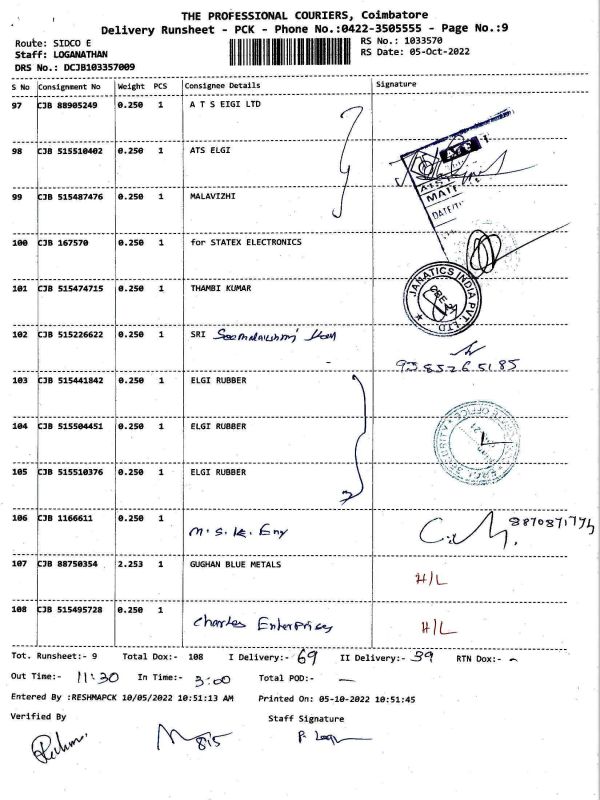 THE PROFESSIONAL COURIERS, Coimbatore
Delivery Runsheet - PCK - Phone No.:0422-3505555 - Page No.:9
Route: SIDCO E
RS No.: 1033570
Staff: LOGANATHAN
RS Date: 05-Oct-2022
DRS No.: DCJB103357009
S No Consignment No Weight PCS Consignee Details Signature
97 CJB 88905249 0.250 1 A T S EIGI LTD
98 CJB 515510402 0.250 1 ATS ELGI
ATS
MATE
DATE/TI
99 CJB 515487476 0.250 1 MALAVIZHI
100 CJB 167570 0.250 1 for STATEX ELECTRONICS
101 CJB 515474715 0.250 1 THAMBI KUMAR
JANATICS INDIA PVT. LTD
CBE
102 CJB 515226622 0.250 1 SRI
9385265185
103 CJB 515441842 0.250 1 ELGI RUBBER
104 CJB 515504451 0.250 1 ELGI RUBBER
SECURITY
105 CJB 515510376 0.250 1 ELGI RUBBER
106 CJB 1166611 0.250 1 M.S.K. Eng
107 CJB 88750354 2.253 1 GUGHAN BLUE METALS H/L
108 CJB 515495728 0.250 1 Charles Enterprises H/L
Tot. Runsheet:- 9 Total Dox:- 108 I Delivery:- 69 II Delivery:- 39 RTN Dox:- -
Out Time:- 11:30 In Time:- 3:00 Total POD:- -
Entered By :RESHMAPCK 10/05/2022 10:51:13 AM Printed On: 05-10-2022 10:51:45
Verified By Staff Signature